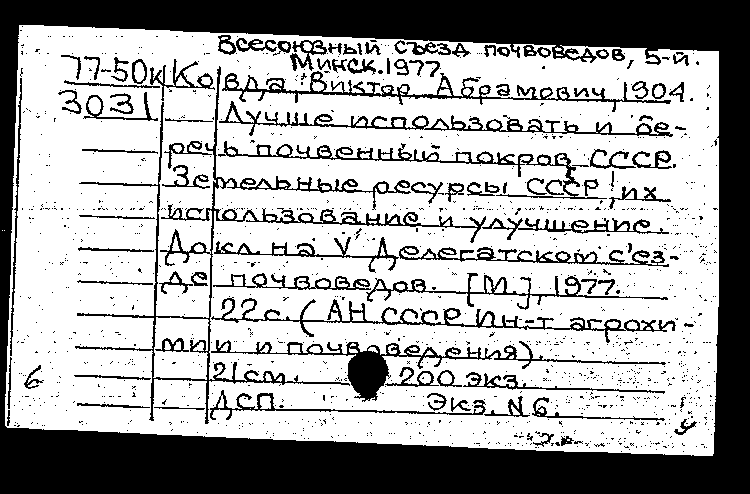 Всесоюзный съезд почвоведов, 5-й.
Минск. 1977
77-50к Ковда, Виктор Абрамович, 1904.
3031 Лучше использовать и бе-
речь почвенный покров СССР.
Земельные ресурсы СССР, их
использование и улучшение.
Докл. на V Делегатском с'ез-
де почвоведов. [М.], 1977.
22с. (АН СССР. Ин-т агрохи-
мии и почвоведения).
6 21см. 200 экз.
ДСП. Экз. N6.